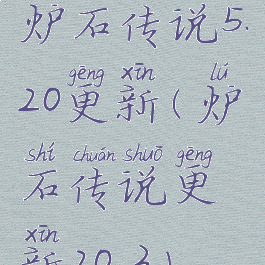 炉石传说5.
gēng xīn lú
20更新(炉
shí chuán shuō gēng
石传说更
xīn
新20.3)